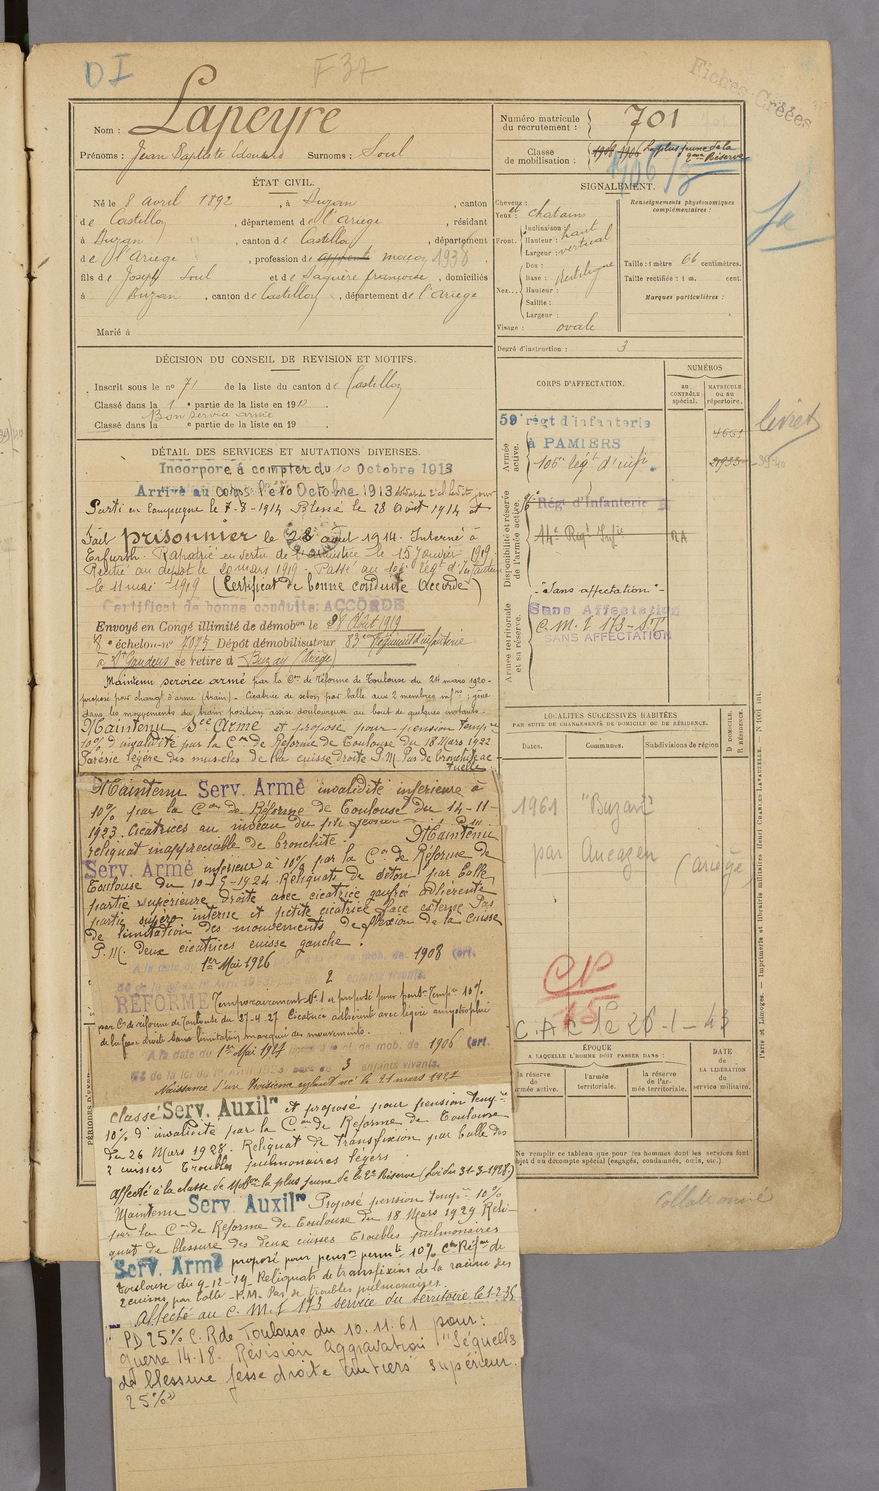 DI
F 37
Fiches Créées
Nom : Lapeyre
Prénoms : Jean Baptiste Edouard Surnoms : Soul
Numéro matricule du recrutement : 701
Classe de mobilisation : 1908 1906 La plus jeune de la 2ème Réserve
1906/3
ÉTAT CIVIL.
Né le 8 avril 1892, à Buzan, canton
de Castillon, département de l'Ariège, résidant
à Buzan, canton de Castillon, département
de l'Ariège, profession de maçon 1936
fils de Joseph Soul et de Françoise, domiciliés
à Buzan, canton de Castillon, département de l'Ariège
Marié à
SIGNALEMENT.
Cheveux :
Yeux : et chatains
Front. Inclinaison : haut
Hauteur : vertical
Largeur :
Nez. Dos :
Base : Rectiligne
Hauteur :
Saillie :
Largeur :
Visage : ovale
Renseignements physionomiques complémentaires :
Taille : 1 mètre 66 centimètres.
Taille rectifiée : 1 m. cent.
Marques particulières :
Degré d'instruction : 3
DÉCISION DU CONSEIL DE REVISION ET MOTIFS.
Inscrit sous le n° 71 de la liste du canton de Castillon
Classé dans la 1e partie de la liste en 191
Bon service armé
Classé dans la e partie de la liste en 19
CORPS D'AFFECTATION.
NUMÉROS
AU CONTRÔLE spécial.
MATRICULE ou au répertoire.
Armée active.
59e régt d'infanterie
à PAMIERS
106e régt d'infie
livret
Disponibilité et réserve de l'armée active.
Régt d'Infanterie
14e Régt Infie
Armée territoriale et sa réserve.
"Sans affectation"
Sans Affectation
C.M.I 173 - S.T
SANS AFFECTATION
DÉTAIL DES SERVICES ET MUTATIONS DIVERSES.
Incorporé à compter du 10 Octobre 1913
Arrivé au corps le 10 Octobre 1913
Parti en Campagne le 7-8-1914 Blessé le 28 août 1914 et
fait prisonnier le 28 août 1914. Interné à
Erfurth. Rapatrié en vertu de l'armistice le 15 Janvier 1919.
Rentré au dépôt le 20 mars 1919. Passé au 106e régt d'Infanterie
le 11 mai 1919 (Certificat de bonne conduite Accordé)
Certificat de bonne conduite: ACCORDÉ
Envoyé en Congé illimité de démobon le 28 Août 1919
8e échelon-n° 7075 Dépôt démobilisateur 83e Régiment d'infanterie
à St Gaudens se retire à Buzan (Ariège)
Maintenu service armé par la Con de réforme de Toulouse du 24 mars 1920
proposé pour changt d'arme (train). Cicatrice de séton par balle aux 2 membres infrs ; gêne
dans les mouvements du train position assise douloureuse au bout de quelques instants.
Maintenu Sce Armé et proposé pour pension tempre
10% d'invalidité par la Con de Réforme de Toulouse du 18 Mars 1922
Parésie légère des muscles de la cuisse droite P.M. Pas de bronchite actuelle
Maintenu Serv. Armé invalidité inférieure à
10% par la Con de Réforme de Toulouse du 14-11-
1923. Cicatrices au niveau du pli
reliquat inappréciable de bronchite. Maintenu
Serv. Armé inférieure à 10% par la Con de Réforme de
Toulouse du 10-5-1924. Reliquats de séton par balle
partie supérieure droite avec cicatrice gaufrée adhérente
partie supéro interne et petite cicatrice face externe. Pas
de limitation des mouvements de flexion de la cuisse
P.M. deux cicatrices cuisse gauche.
1er Mai 1926 1908 (art.
2 enfants vivants.
RÉFORMÉ Temporairement N° 1 et proposé pour pension Tempre 10%
par Con de réforme de Toulouse du 27-4-27 Cicatrice adhérente avec légère amyotrophie
de la fesse droite sans limitation marquée des mouvements.
A la date du 1er Mai 1927 cl. de mob. de 1906 (art.
3 enfants vivants.
Naissance d'un troisième enfant né le 21 mars 1927
Classé Serv. Auxilre et proposé pour pension tempre
10% d'invalidité par la Con de Réforme de Toulouse
du 26 Mars 1928. Reliquat de transfixion par balle des
2 cuisses Troubles pulmonaires légers.
Affecté à la classe de Mobon la plus jeune de la 2e Réserve (Loi du 31-3-1928)
Maintenu Serv. Auxilre Proposé pension tempre 10%
par la Con de Réforme de Toulouse du 18 Mars 1929. Reli-
quat de blessure des deux cuisses Troubles pulmonaires
Serv. Armé proposé pour pens. permte 10% Con Réfme de
Toulouse du 9-12-19 Reliquats de transfixion de la racine des
2 cuisses par balle - P.M. Pas de troubles pulmonaires.
Affecté au C.M.I 173 service du territoire le 1.2.35
PD 25% C.R de Toulouse du 10.11.61 pour:
guerre 14-18. Révision Aggravation "Séquelles
de blessure fesse droite 1/3 tiers supérieur.
25%"
LOCALITÉS SUCCESSIVES HABITÉES
PAR SUITE DE CHANGEMENTS DE DOMICILE OU DE RÉSIDENCE.
Dates. Communes. Subdivisions de région
D. DOMICILE. R. RÉSIDENCE.
1961 "Buzan"
par Aucazein (Ariège)
CP
15
C.A.R le 26-1-43
ÉPOQUE
A LAQUELLE L'HOMME DOIT PASSER DANS :
la réserve de armée active.
l'armée territoriale.
la réserve de l'armée territoriale.
DATE de LA LIBÉRATION du service militaire.
Ne remplir ce tableau que pour les hommes dont les services font
objet d'un décompte spécial (engagés, condamnés, omis, etc.).
Collationné
Paris et Limoges. — Imprimerie et librairie militaires Henri CHARLES-LAVAUZELLE.